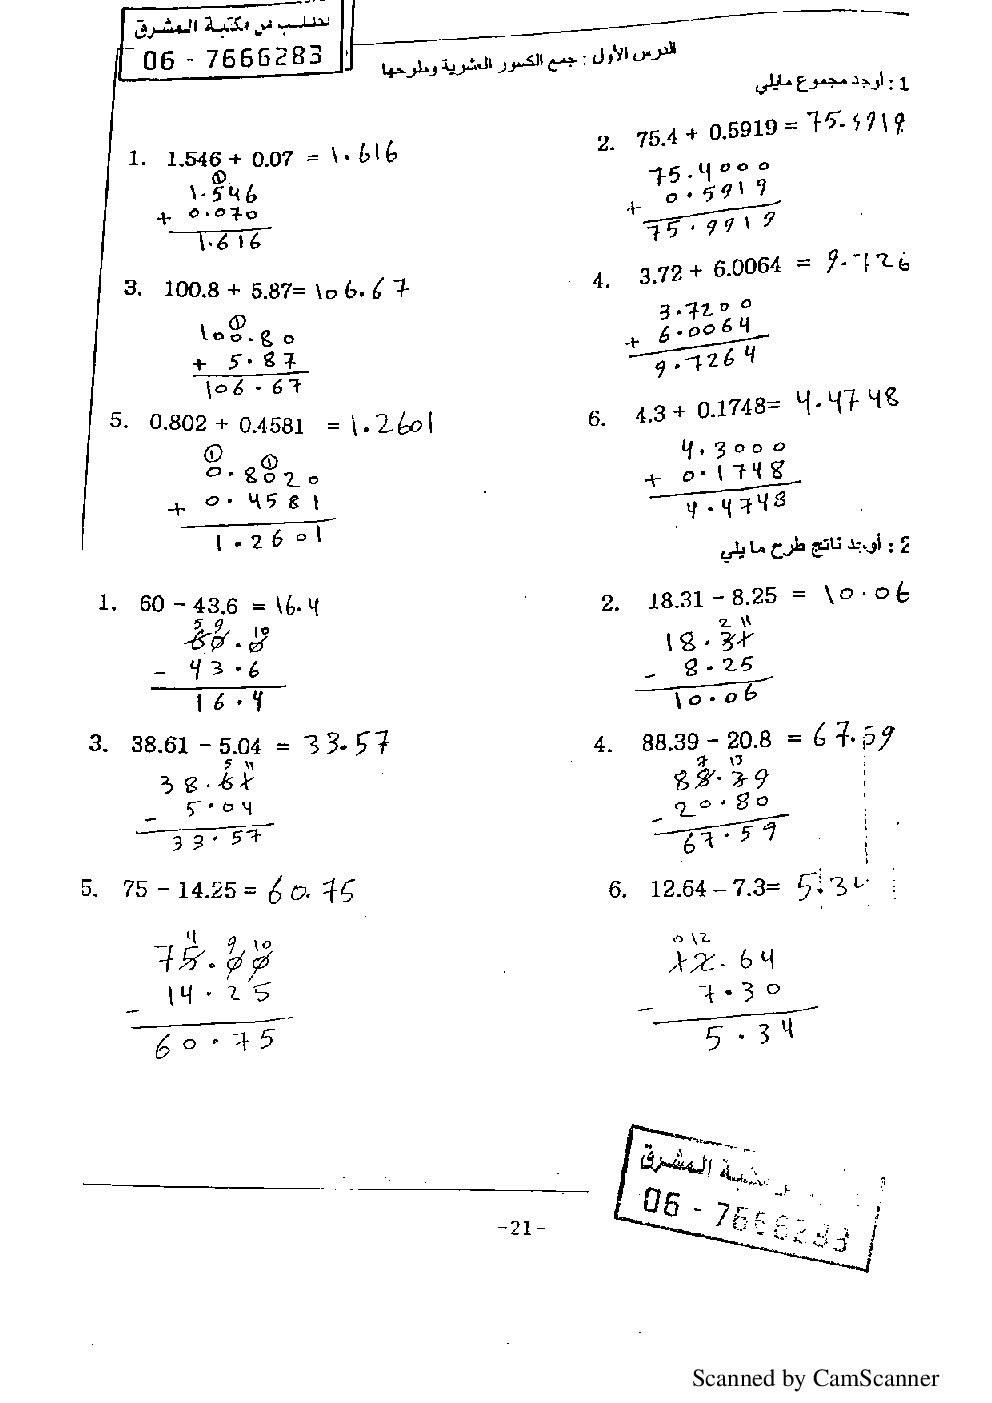 يطلب من مكتبة المشرق
06 - 7666283
الدرس الأول : جمع الكسور العشرية وطرحها
1 : أوجد مجموع مايلي
1. 1.546 + 0.07 = 1.616
①
1.546
+ 0.070
1.616
2. 75.4 + 0.5919 = 75.9919
75.4000
+ 0.5919
75.9919
3. 100.8 + 5.87= 106.67
①
100.80
+ 5.87
106.67
4. 3.72 + 6.0064 = 9.726
3.7200
+ 6.0064
9.7264
5. 0.802 + 0.4581 = 1.2601
① ①
0.8020
+ 0.4581
1.2601
6. 4.3 + 0.1748= 4.4748
4.3000
+ 0.1748
4.4748
2 : أوجد ناتج طرح مايلي
1. 60 - 43.6 = 16.4
5 9 10
60.0
- 43.6
16.4
2. 18.31 - 8.25 = 10.06
2 11
18.31
- 8.25
10.06
3. 38.61 - 5.04 = 33.57
5 11
38.61
- 5.04
33.57
4. 88.39 - 20.8 = 67.59
7 13
88.39
- 20.80
67.59
5. 75 - 14.25 = 60.75
4 9 10
75.00
- 14.25
60.75
6. 12.64 - 7.3= 5.34
0 12
12.64
- 7.30
5.34
مكتبة المشرق
06 - 7666283
-21-
Scanned by CamScanner